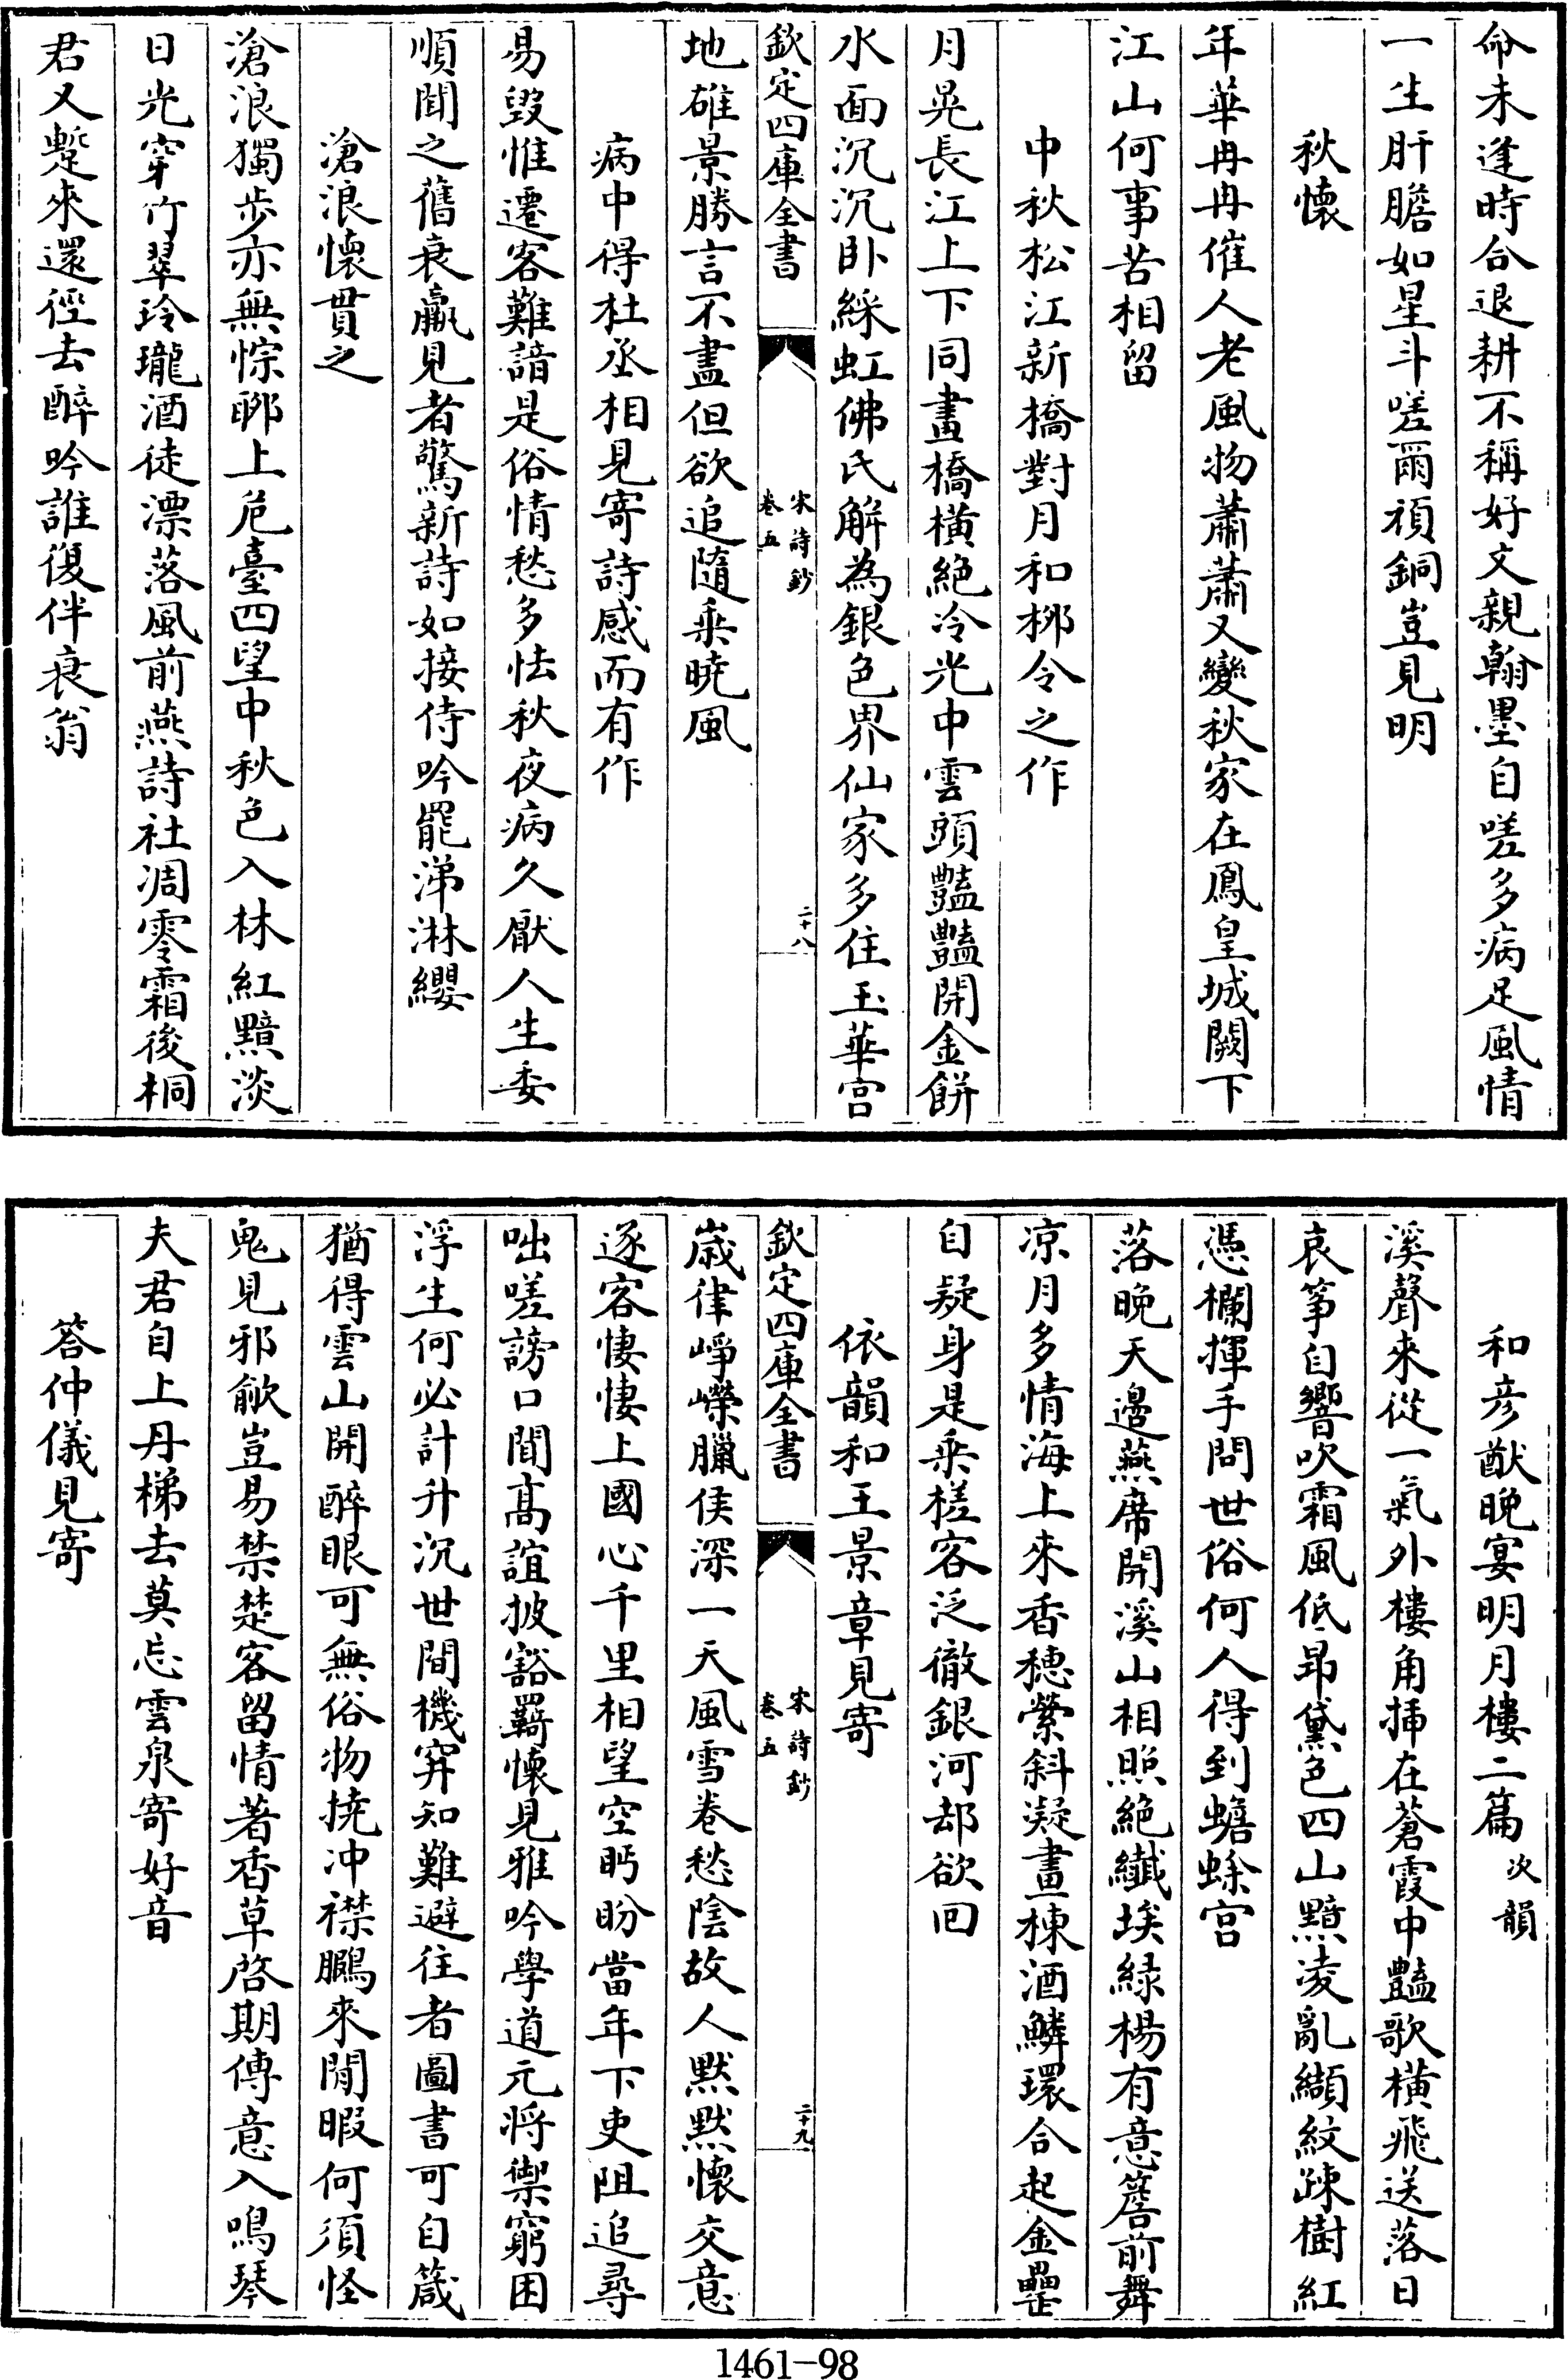 命未逢時合退耕不稱好文親翰墨自嗟多病足風情
一生肝膽如星斗嗟爾頑銅豈見明
秋懷
年華冉冉催人老風物蕭蕭又變秋家在鳳皇城闕下
江山何事苦相留
中秋松江新橋對月和栁令之作
月晃長江上下同畫橋橫絶冷光中雲頭豔豔開金餅
水面沉沉卧綵虹佛氏解為銀色界仙家多住玉華宫
欽定四庫全書
宋詩鈔
卷五
二十八
地雄景勝言不盡但欲追隨乗曉風
病中得杜丞相見寄詩感而有作
易毁惟遷客難諳是俗情愁多怯秋夜病久厭人生委
順聞之舊衰羸見者驚新詩如接侍吟罷涕淋纓
滄浪懷貫之
滄浪獨步亦無悰聊上危臺四望中秋色入林紅黯淡
日光穿竹翠玲瓏酒徒漂落風前燕詩社凋零霜後桐
君又蹔來還徑去醉吟誰復伴衰翁
和彦猷晚宴明月樓二篇次韻
溪聲來從一氣外樓角挿在蒼霞中豔歌橫飛送落日
哀筝自響吹霜風低昻黛色四山黯凌亂纈紋疎樹紅
憑欄揮手問世俗何人得到蟾蜍宫
落晚天邉燕席開溪山相照絶纎埃緑楊有意簷前舞
凉月多情海上來香穗縈斜凝畫棟酒鱗環合起金罍
自疑身是乗槎客泛徹銀河却欲囘
依韻和王景章見寄
欽定四庫全書
宋詩鈔
卷五
二十九
歳律崢嶸臘候深一天風雪卷愁陰故人默默懷交意
逐客悽悽上國心千里相望空眄盼當年下吏阻追尋
咄嗟謗口聞髙誼披豁羇懷見雅吟學道元將禦窮困
浮生何必計升沉世間機穽知難避往者圖書可自箴
猶得雲山開醉眼可無俗物撓冲襟鵩來閒暇何須怪
鬼見邪歈豈易禁楚客留情著香草啓期傳意入鳴琴
夫君自上丹梯去莫忘雲泉寄好音
答仲儀見寄
1461-98